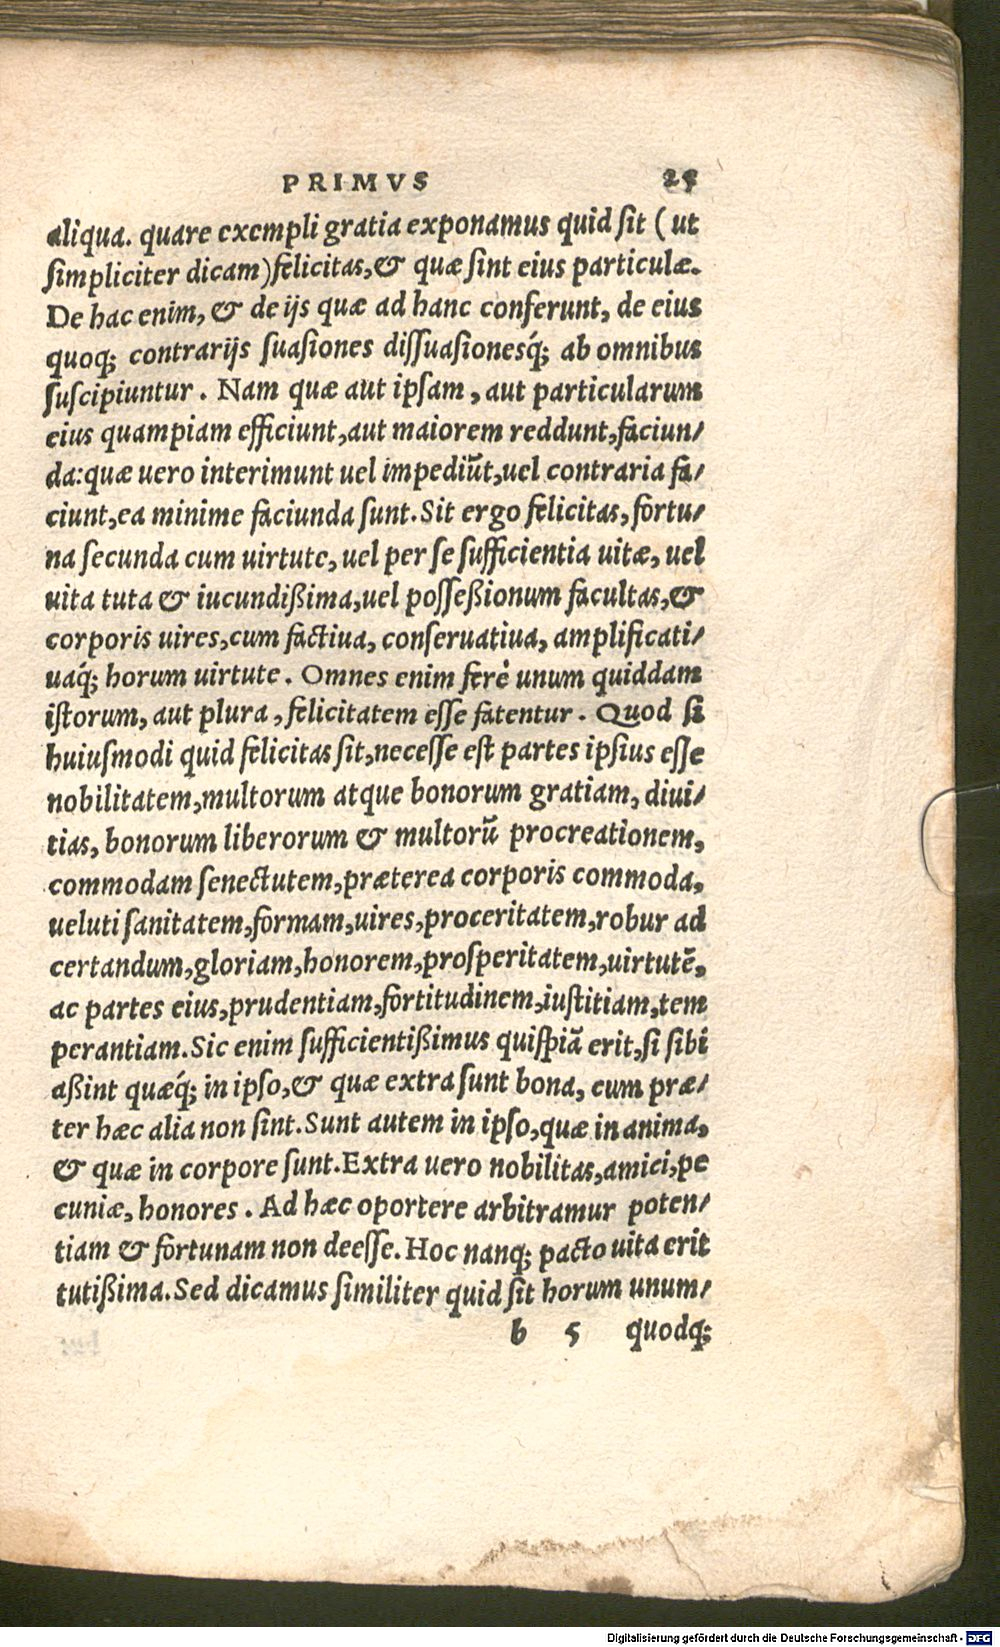 PRIMVS 25
aliqua. quare exempli gratia exponamus quid ſit (ut
ſimpliciter dicam) felicitas, & quæ ſint eius particulæ.
De hac enim, & de ijs quæ ad hanc conferunt, de eius
quoq; contrarijs ſuaſiones diſſuaſionesq́; ab omnibus
ſuſcipiuntur. Nam quæ aut ipſam, aut particularum
eius quampiam efficiunt, aut maiorem reddunt, faciun/
da: quæ uero interimunt uel impediũt, uel contraria fa/
ciunt, ea minime faciunda ſunt. Sit ergo felicitas, fortu/
na ſecunda cum uirtute, uel per ſe ſufficientia uitæ, uel
uita tuta & iucundißima, uel poſſeßionum facultas, &
corporis uires, cum factiua, conſeruatiua, amplificati/
uaq́; horum uirtute. Omnes enim ferè unum quiddam
iſtorum, aut plura, felicitatem eſſe fatentur. Quod ſi
huiuſmodi quid felicitas ſit, neceſſe eſt partes ipſius eſſe
nobilitatem, multorum atque bonorum gratiam, diui/
tias, bonorum liberorum & multorũ procreationem,
commodam ſenectutem, præterea corporis commoda,
ueluti ſanitatem, formam, uires, proceritatem, robur ad
certandum, gloriam, honorem, proſperitatem, uirtutẽ,
ac partes eius, prudentiam, fortitudinem, iuſtitiam, tem
perantiam. Sic enim ſufficientißimus quiſpiã erit, ſi ſibi
aßint quæq́; in ipſo, & quæ extra ſunt bona, cum præ/
ter hæc alia non ſint. Sunt autem in ipſo, quæ in anima,
& quæ in corpore ſunt. Extra uero nobilitas, amici, pe
cuniæ, honores. Ad hæc oportere arbitramur poten/
tiam & fortunam non deeſſe. Hoc nanq; pacto uita erit
tutißima. Sed dicamus ſimiliter quid ſit horum unum/
b 5 quodq;
Digitalisierung gefördert durch die Deutsche Forschungsgemeinschaft - DFG